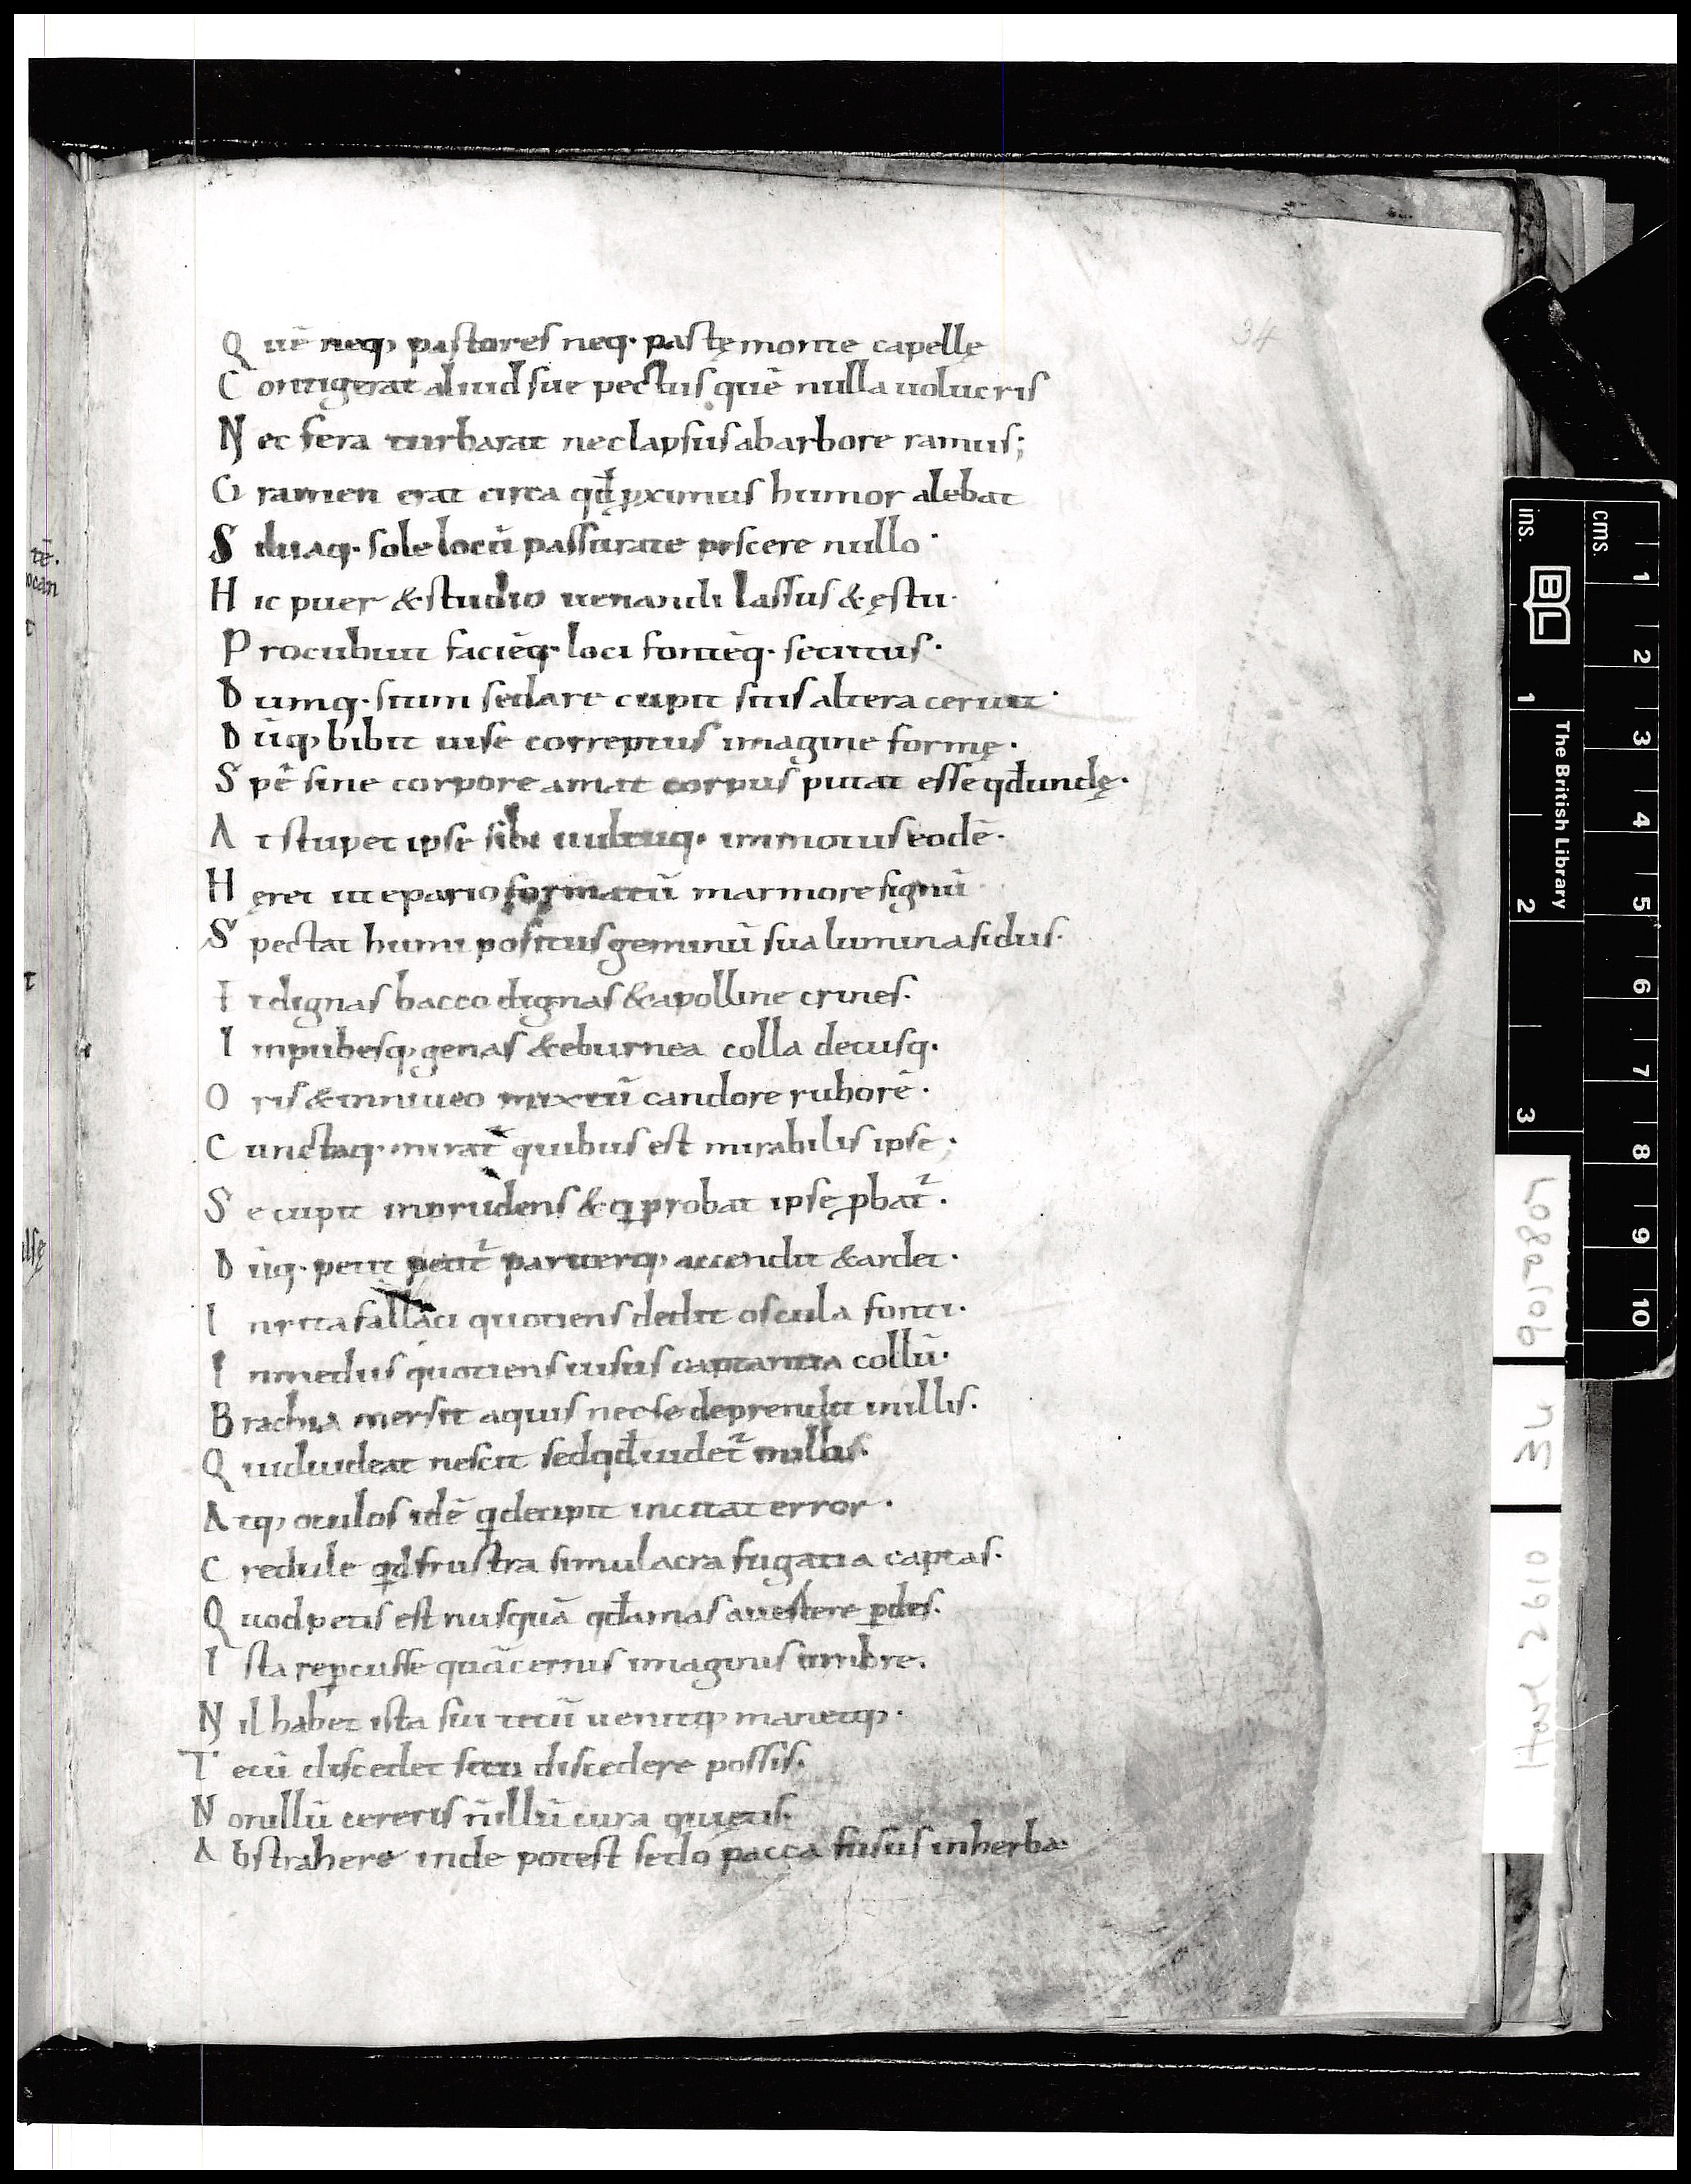 34
Q uē neq; pastores neq· pastę monte capellę
C ontigerat aliud sue pectus quē nulla uolucris
N ec fera turbarat nec lapsus ab arbore ramus;
G ramen erat circa qđ pximus humor alebat
S iluaq· sole locū passura tepescere nullo·
H ic puer & studio uenandi lassus & ęstu·
P rocubuit faciēq· loci fontēq· secutus·
D umq· sitim sedare cupit sitis altera creuit·
D ūq; bibit uise correptus imagine formę·
S pē sine corpore amat corpus putat esse qđ undę·
A t stupet ipse sibi uultuq· immotus eodē·
H ęret ut e pario formatū marmore signū
S pectat humi positus geminū sua lumina sidus·
I t dignas bacco dignas & apolline crines·
I mpubesq; genas & eburnea colla decusq·
O ris & in niueo mixtū candore ruborē·
C unctaq· mirat̄ quibus est mirabilis ipse;
S e cupit inprudens & q probat ipse pbat̄·
D ūq· petit petit̄ pariterq; accendit & ardet·
I nrita fallaci quotiens dedit oscula fonti·
I n medus quotiens uisus captantia collū·
B rachia mersit aquis nec se deprendit in illis·
Q uid uideat nescit sed qđ uidet̄ in illis·
A tq; oculos idē q decipit incitat error·
C redule qd frustra simulacra fugatia captas·
Q uod petis est nusquā qđ amas auestere pdes·
I sta repcusse quā cernis imaginis umbre·
N il habet ista sui tecū uenitq; manetq;·
T ecū discedet si tu discedere possis·
N on illū cereris n̄ illū cura quietis
A bstrahere inde potest sed opacca fusus in herba·
ins.
cms.
1
2
3
1
2
3
4
5
6
7
8
9
10
BL
The British Library
9012807
34
Harl 2610